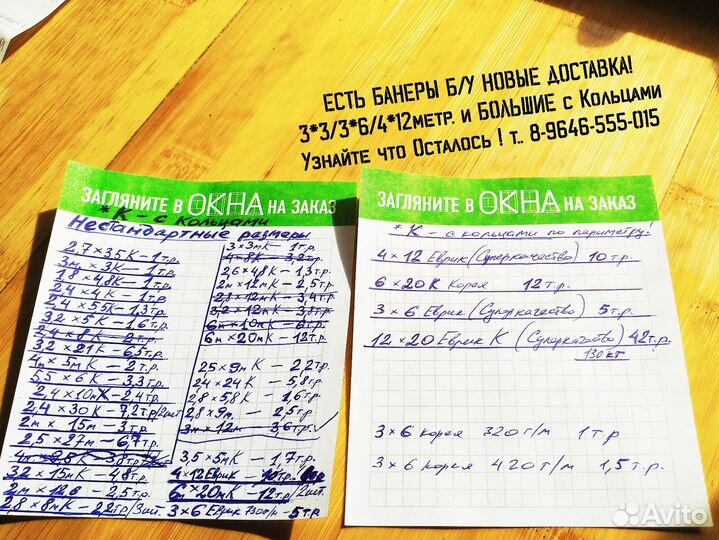 ЕСТЬ БАНЕРЫ Б/У НОВЫЕ ДОСТАВКА!
3*3/3*6/4*12метр. и БОЛЬШИЕ с Кольцами
Узнайте что Осталось ! т.. 8-9646-555-015
ЗАГЛЯНИТЕ В ОКНА НА ЗАКАЗ
*К - с кольцами
Нестандартные размеры
2,7 х 3,5К - 1т.р.
3м х 3К - 1т.р.
1,8 х 4,8К - 1т.р.
2,4 х 4К - 1т.р.
2,4 х 5,5К - 1,3т.р.
3,2 х 5К - 1,6т.р.
2,4 х 8К - 2т.р.
3,2 х 21К - 6,5т.р.
4м х 5мК - 2т.р.
5,5 х 6К - 3,3т.р.
2,4 х 10мК - 2,4т.р.
2,4 х 30К - 7,2т.р/2шт
2м х 15м - 3т.р.
2,5 х 27м - 6,7т.р.
3,2 х 15мК - 4,8т.р.
2м х 12б - 2,5т.р.
2,8 х 8мК - 2,2т.р/3шт.
3 х 3мК - 1т.р.
4 х 8К - 3,2т.р.
2,6 х 4,8К - 1,3т.р.
2м х 12мК - 2,5т.р.
2,8 х 12мК - 3,4т.р.
3,2 х 12мК - 3,8т.р.
6м х 10мК - 6т.р.
6м х 20мК - 12т.р.
25 х 9мК - 2,2т.р.
2,4 х 24К - 5,8т.р.
2,8 х 5,8К - 1,6т.р.
2,8 х 9м. - 2,5т.р.
3м х 12м - 3,6т.р.
3,5 х 5мК - 1,7т.р.
4 х 12Еврик - 10т.р.
6м х 20мК - 12т.р/2шт.
3 х 6 Еврик 730г/м - 5т.р.
ЗАГЛЯНИТЕ В ОКНА НА ЗАКАЗ
*К - с кольцами по периметру!
4 х 12 Еврик (Суперкачество) 10т.р.
6 х 20К Корея 12т.р.
3 х 6 Еврик (Суперкачество) 5т.р.
12 х 20 Еврик К (Суперкачество) 42т.р.
130 кг
3 х 6 корея 320г/м 1т.р
3 х 6 корея 420г/м 1,5т.р.
Avito